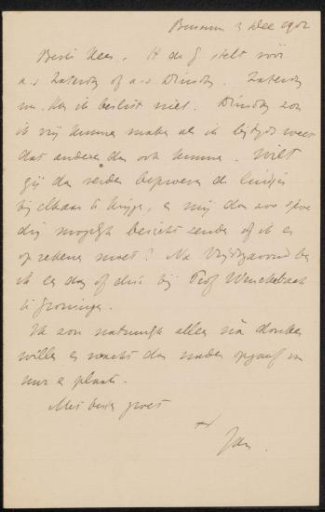 Bussum 3 Dec 1902
Beste Kees. H de J stelt vóór
a.s. Zaterdag of a.s. Dinsdag. Zaterdag
kan ik beslist niet. Dinsdag zou
ik vrij kunnen maken als ik bytyds weet
dat anderen dan ook kunnen. Wilt
gij dan verder beproeven de lui
bij elkaar te krijgen, en mij dan zoo spoe
dig mogelijk bericht zenden of ik er
op rekenen moet? Na Vrijdagavond ben
ik een dag of drie bij Prof Wenckebach
te Groningen.
Ik zou natuurlijk alles ná donker
willen en wacht dan nader opgaaf van
uur en plaats.
Met beste groet
Jan.